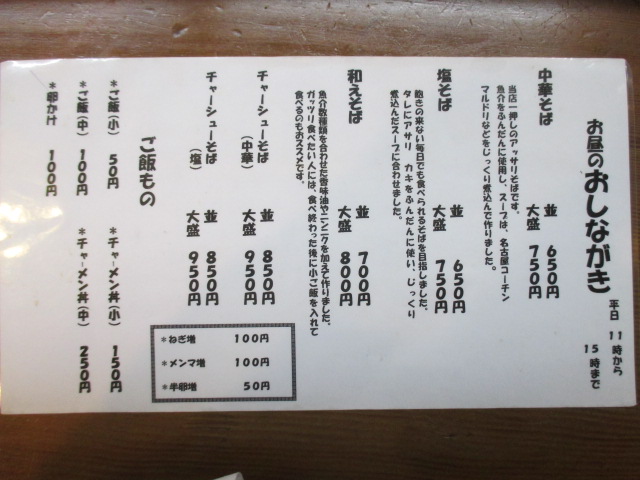 お昼のおしながき
平日 11時から
15時まで
中華そば
並 650円
大盛 750円
当店一押しのアッサリそばです。
魚介をふんだんに使用し、スープは、名古屋コーチン
マルドリなどをじっくり煮込んで作りました。
塩そば
並 650円
大盛 750円
飽きの来ない毎日でも食べられるそばを目指しました。
タレにアサリ カキをふんだんに使い、じっくり
煮込んだスープに合わせました。
和えそば
並 700円
大盛 800円
魚介数種類を合わせた香味油やニンニクを加えて作りました。
ガッツリ食べたい人には、食べ終わった後に小ご飯を入れて
食べるのもおススメです。
チャーシューそば
(中華)
並 850円
大盛 950円
チャーシューそば
(塩)
並 850円
大盛 950円
*ねぎ増 100円
*メンマ増 100円
*半卵増 50円
ご飯もの
*ご飯(小) 50円
*チャーメン丼(小) 150円
*ご飯(中) 100円
*チャーメン丼(中) 250円
*卵かけ 100円